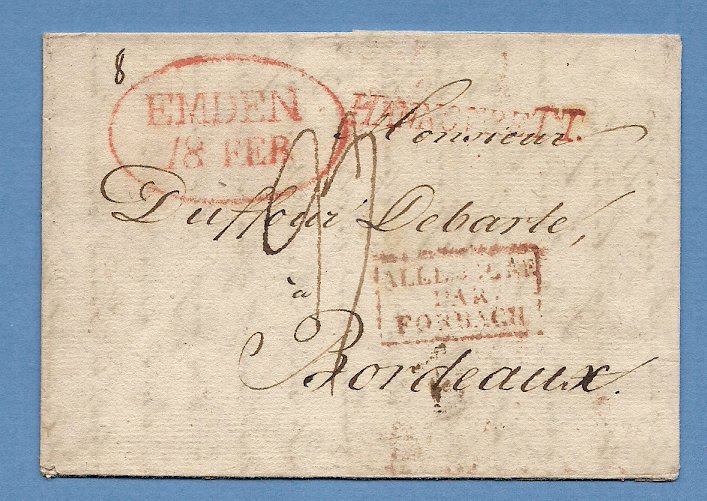 8
EMDEN
18 FEB
Monsieur
Duffour Debarte,
à
ALLEMAGNE
PAR
FORBACH
Bordeaux.